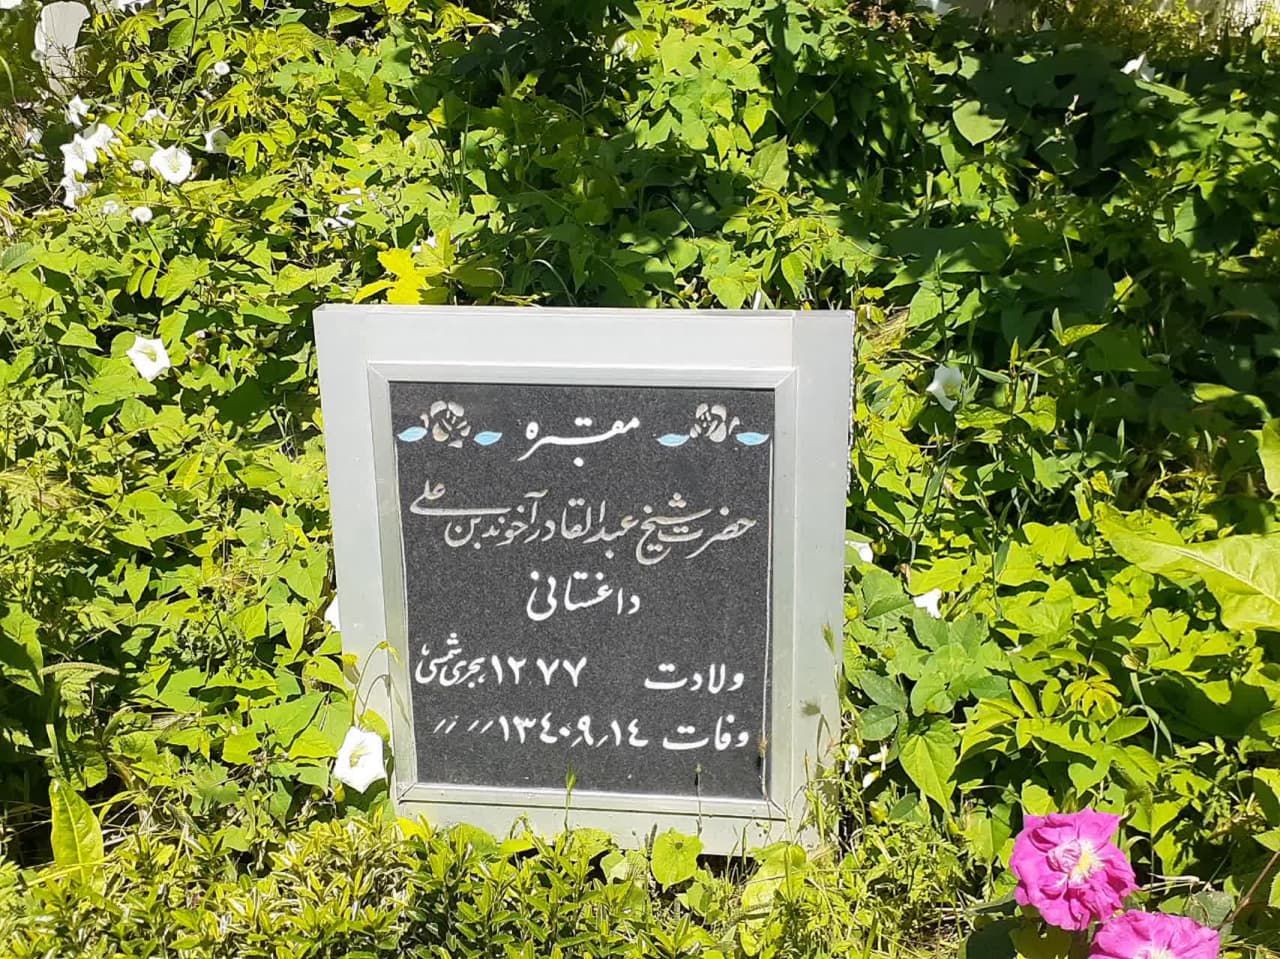 مقبره
حضرت شیخ عبدالقادر آخوند بن علی
داغستانی
ولادت ١٢٧٧ هجری شمسی
وفات ١٤٫٩٫١٣٤٠ 〃 〃